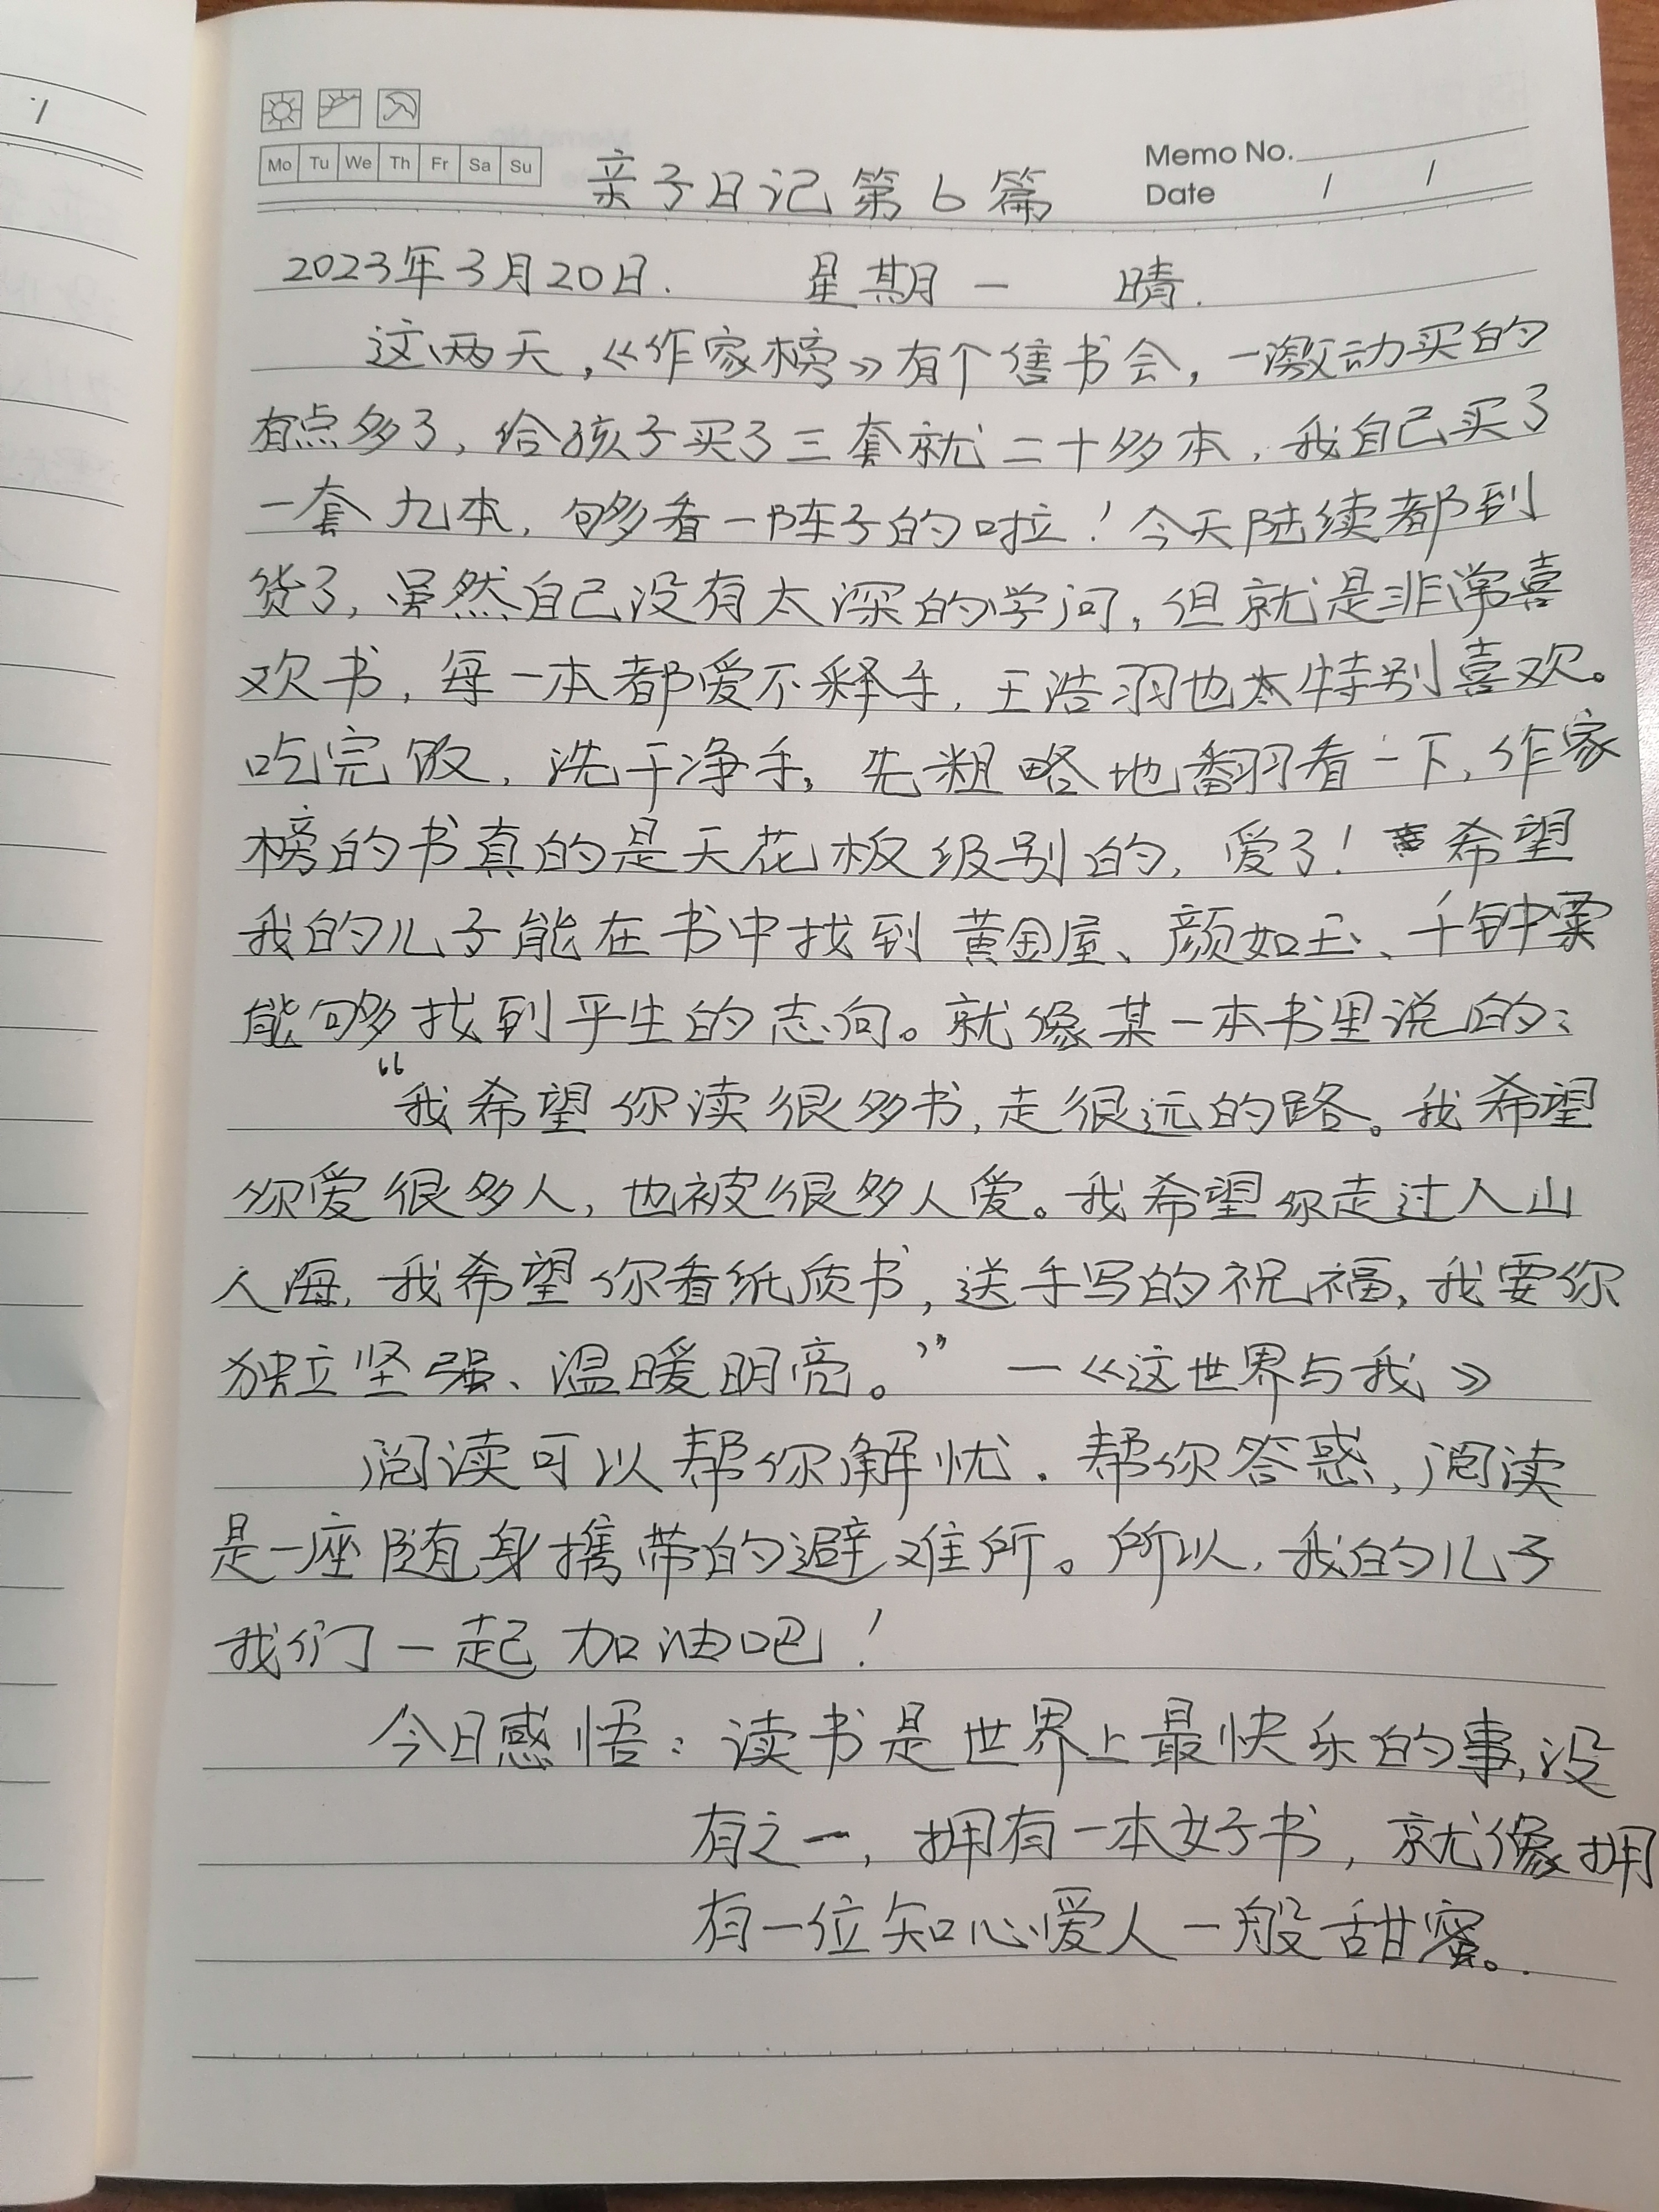 Mo Tu We Th Fr Sa Su
Memo No.
Date / /
亲子日记第6篇
2023年3月20日. 星期一 晴.
这两天,《作家榜》有个售书会,一激动买的
有点多了,给孩子买了三套就二十多本,我自己买了
一套九本,够看一阵子的啦!今天陆续都到
货了,虽然自己没有太深的学问,但就是非常喜
欢书,每一本都爱不释手,王浩羽也太特别喜欢。
吃完饭,洗干净手,先粗略地翻看一下,作家
榜的书真的是天花板级别的,爱了!希望
我的儿子能在书中找到黄金屋、颜如玉、千钟粟
能够找到平生的志向。就像某一本书里说的:
“我希望你读很多书,走很远的路。我希望
你爱很多人,也被很多人爱。我希望你走过人山
人海,我希望你看纸质书,送手写的祝福,我要你
独立坚强、温暖明亮。” —《这世界与我》
阅读可以帮你解忧.帮你答惑,阅读
是一座随身携带的避难所。所以,我的儿子
我们一起加油吧!
今日感悟:读书是世界上最快乐的事,没
有之一,拥有一本好书,就像拥
有一位知心爱人一般甜蜜。